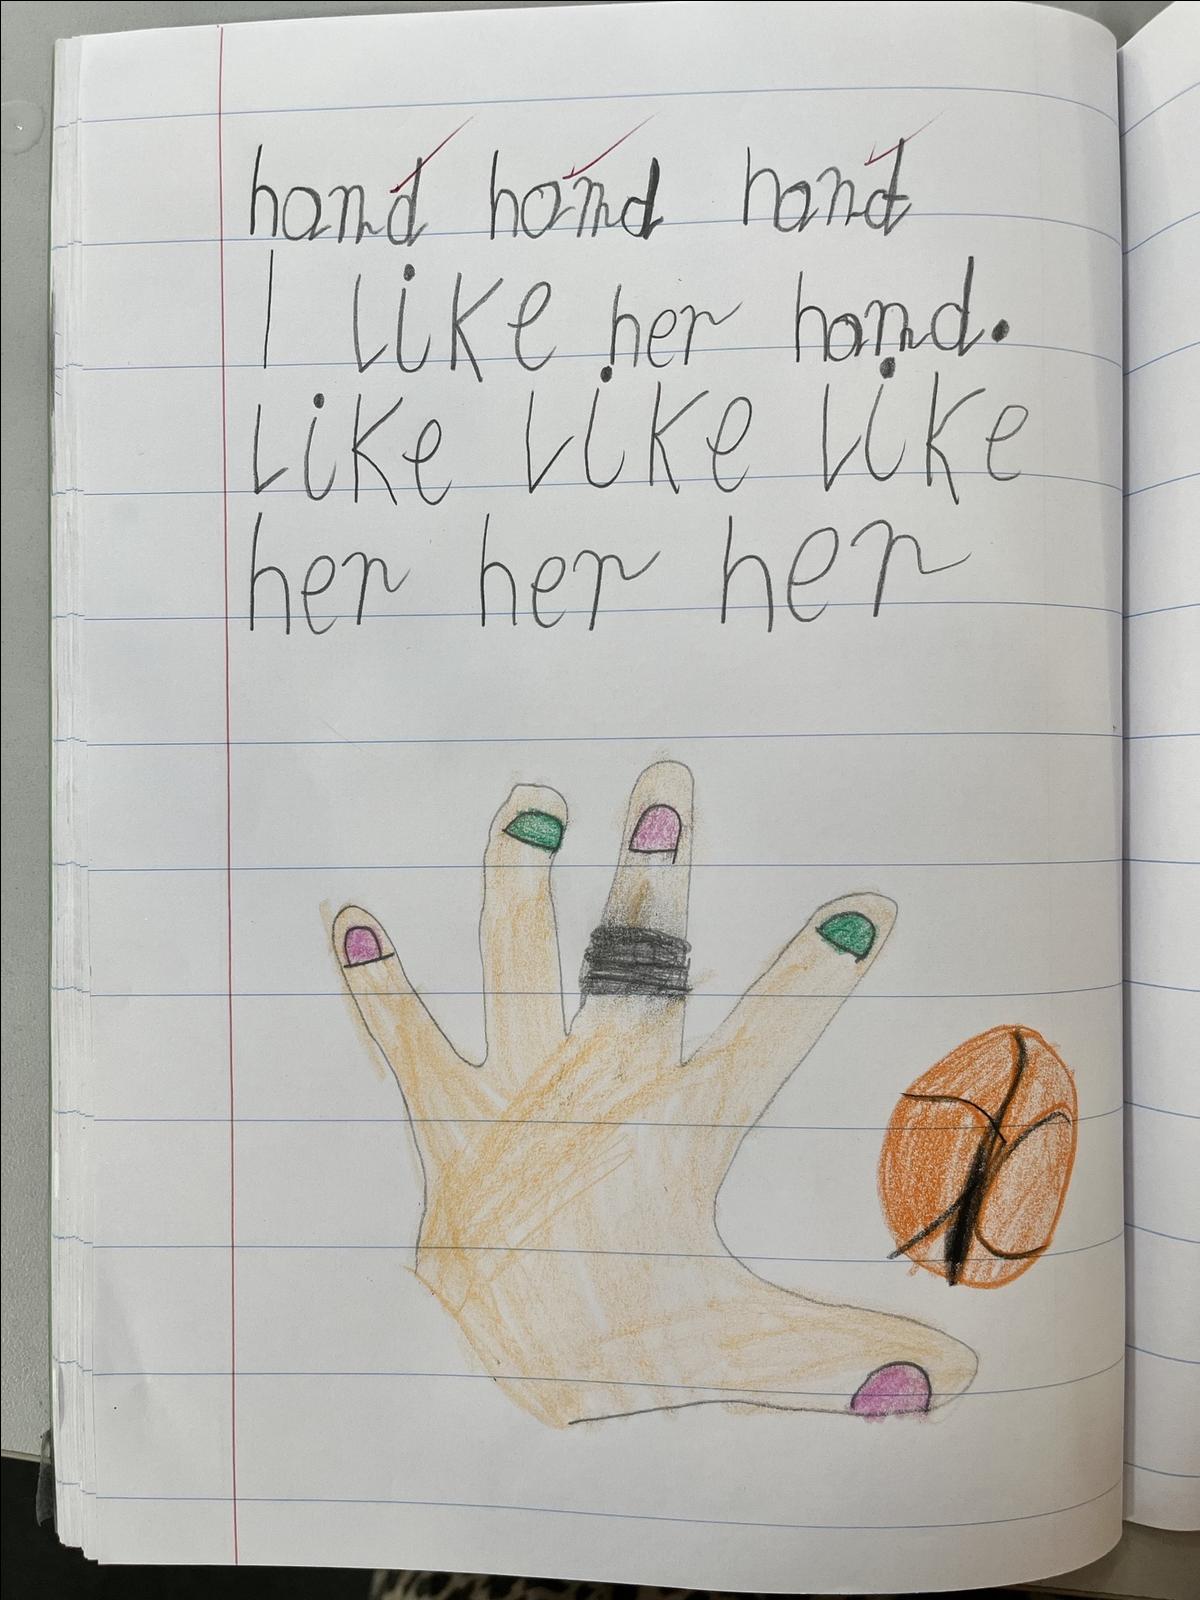 hand hand hand
I like her hand.
like like like
her her her